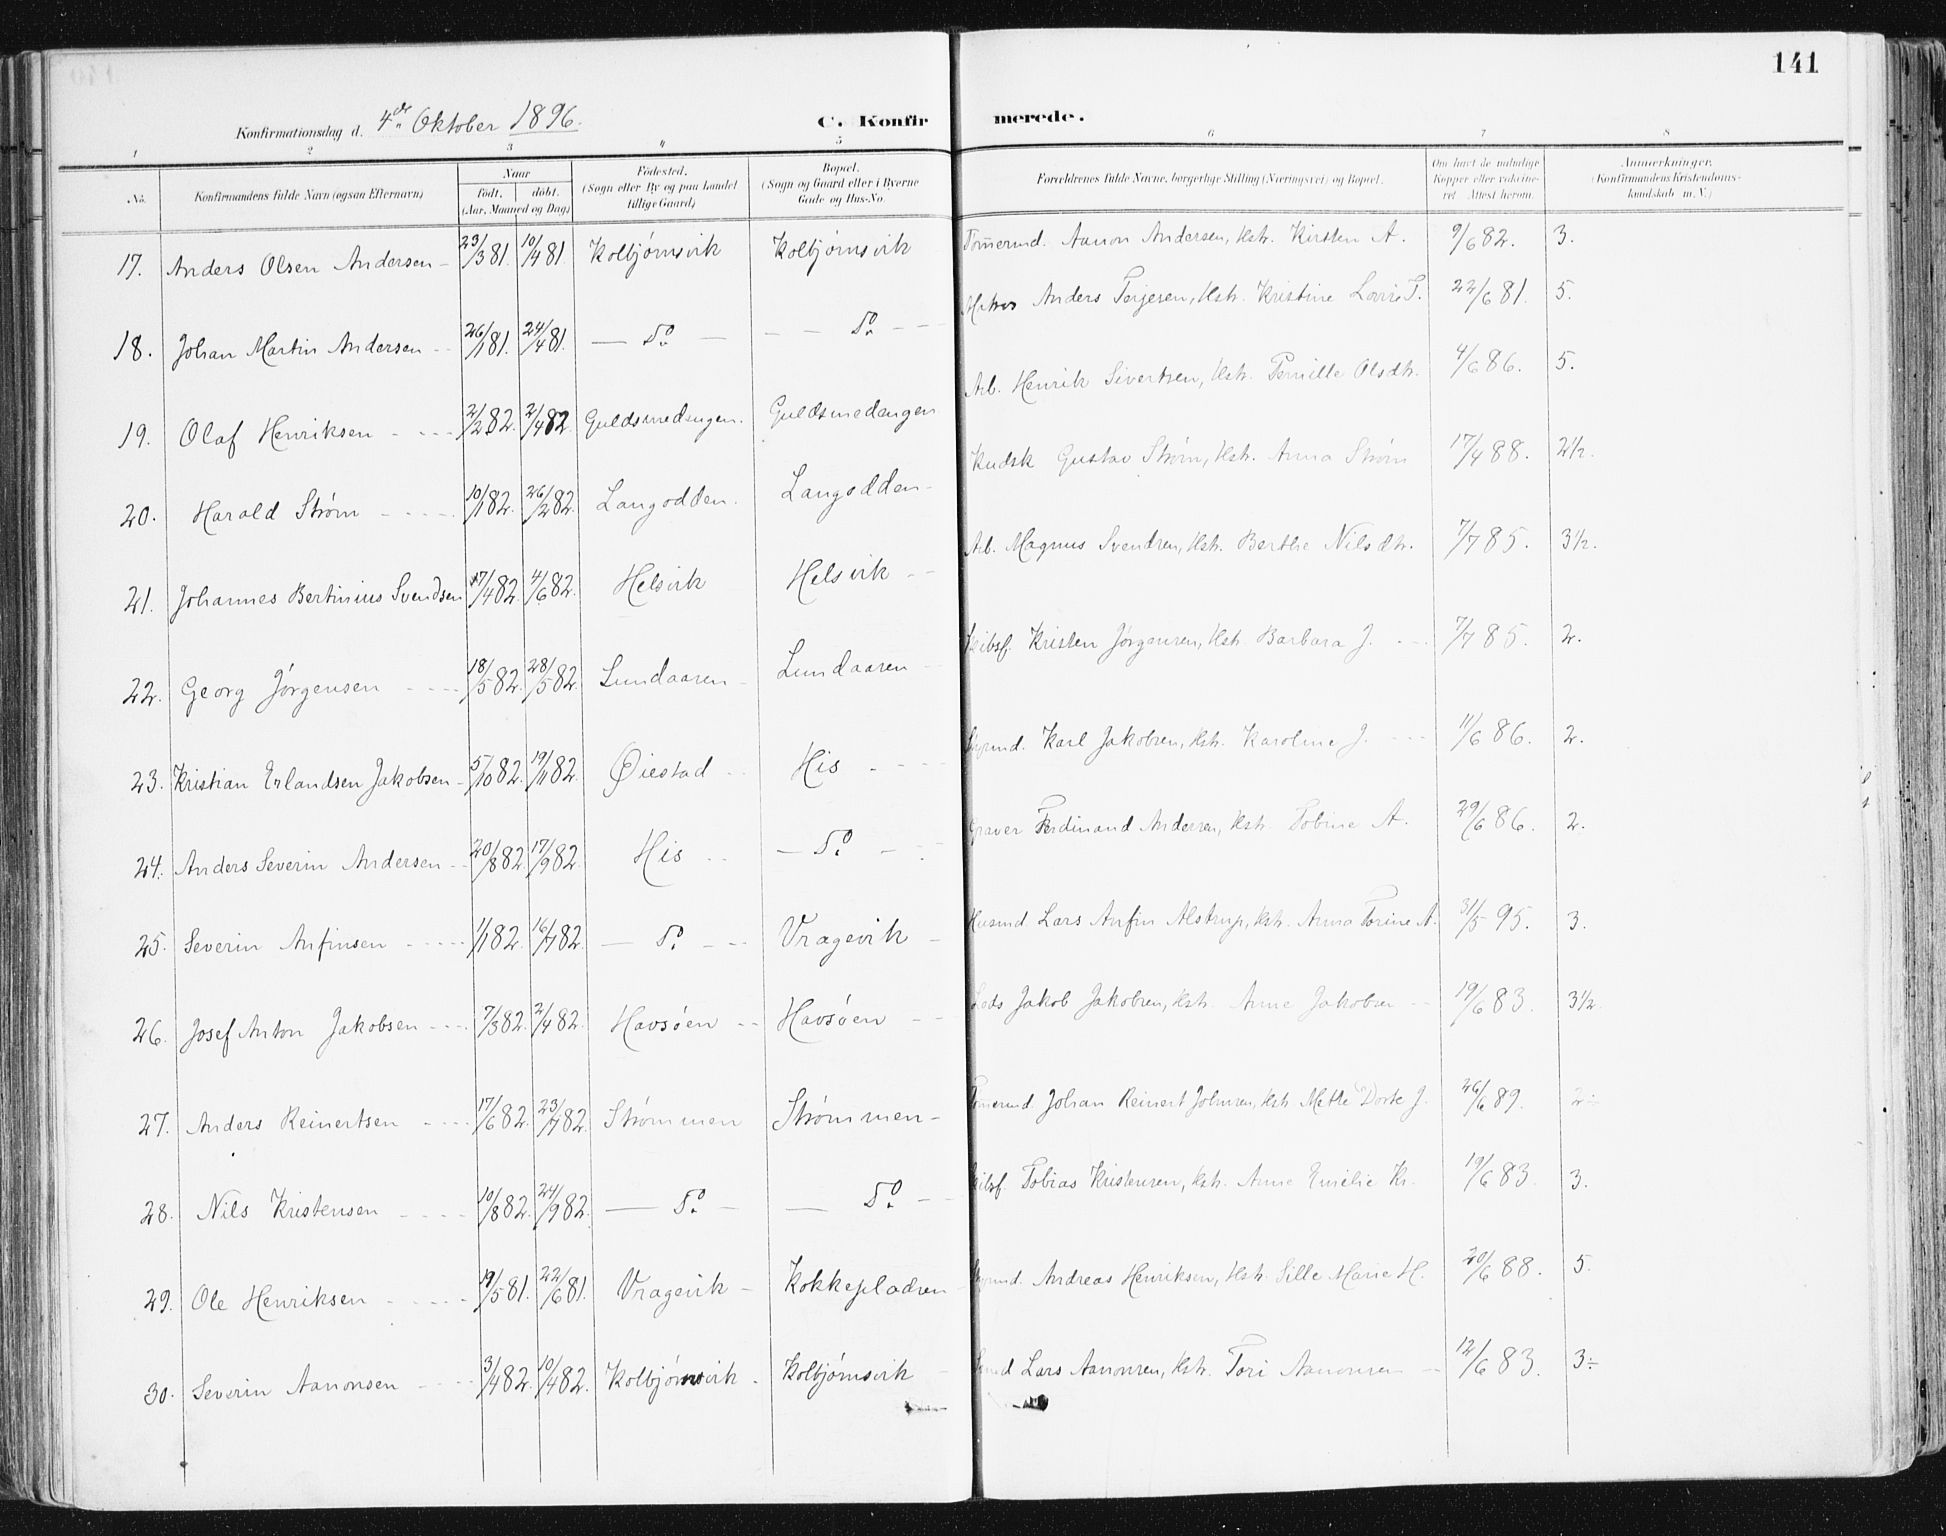 141
Konfirmationsdag d. 4de Oktober 1896.
C. Konfirmerede.
1 2 3 4 5 6 7 8
No. Konfirmandens fulde Navn (ogsaa Efternavn) Naar født. døbt. (Aar, Maaned og Dag) Fødested. (Sogn eller By og paa Landet tillige Gaard) Bopæl. (Sogn og Gaard eller i Byerne Gade og Hus-No. Forældrenes fulde Navne, borgerlige Stilling (Næringsvei) og Bopæl. Om havt de naturlige Kopper eller vaccineret. Attest herom. Anmærkninger. (Konfirmandens Kristendomskundskab m. V.)
17. Anders Olsen Andersen 23/3 81. 10/4 81. Kolbjørnsvik Kolbjørnsvik Tømermd. Aanon Andersen, Hstr. Kirsten A. 9/6 82. 3.
18. Johan Martin Andersen 26/1 81. 24/4 81. — Do — — — Do — Matros Anders Terjesen, Hstr. Kristine Lovise T. 22/6 81. 5.
19. Olaf Henriksen 2/2 82. 2/4 82. Guldsmedengen. Guldsmedengen Arb. Henrik Sivertsen, Hstr. Pernille Olsdtr. 4/6 86. 5.
20. Harald Strøm 10/1 82. 26/2 82. Langodden. Langodden Kudsk Gustav Strøm, Hstr. Anna Strøm 17/4 88. 2½.
21. Johannes Bertinius Svendsen 17/4 82. 4/6 82. Helsvik Helsvik Arb. Magnus Svendsen, Hstr. Berthe Nilsdtr. 7/7 85. 3½.
22. Georg Jørgensen 18/5 82. 28/5 82. Lundaaren Lundaaren Skibsf. Kristen Jørgensen, Hstr. Barbara J. 7/7 85. 2.
23. Kristian Erlandsen Jakobsen 5/10 82. 19/11 82. Øiestad His Styrmd. Karl Jakobsen, Hstr. Karoline J. 11/6 86. 2.
24. Anders Severin Andersen 20/8 82. 17/9 82. His — Do — Graver Ferdinand Andersen, Hstr. Tobine A. 29/6 86. 2.
25. Severin Anfinsen 1/1 82. 16/7 82. — Do — Vragevik Husmd Lars Anfin Alstrup, Hstr. Anna Torine A. 31/5 95. 3.
26. Josef Anton Jakobsen 7/3 82. 2/4 82. Havsøen Havsøen Lods Jakob Jakobsen, Hstr. Anne Jakobsen 19/6 83. 3½.
27. Anders Reinertsen 17/6 82. 23/7 82. Strømmen Strømmen Tømermd. Johan Reinert Johnsen, Hstr. Mette Dorte J. 26/6 89. 2÷
28. Nils Kristensen 10/8 82. 24/9 82. — Do — — Do — Skibsf. Tobias Kristensen, Hstr. Anne Emilie Kr. 19/6 83. 3.
29. Ole Henriksen 19/5 81. 22/6 81. Vragevik Kokkepladsen Styrmd. Andreas Henriksen, Hstr. Sille Marie H. 20/6 88. 5.
30. Severin Aanonsen 3/4 82. 10/4 82. Kolbjørnsvik Kolbjørnsvik Lars Aanonsen, Hstr. Tori Aanonsen 12/6 83. 3÷